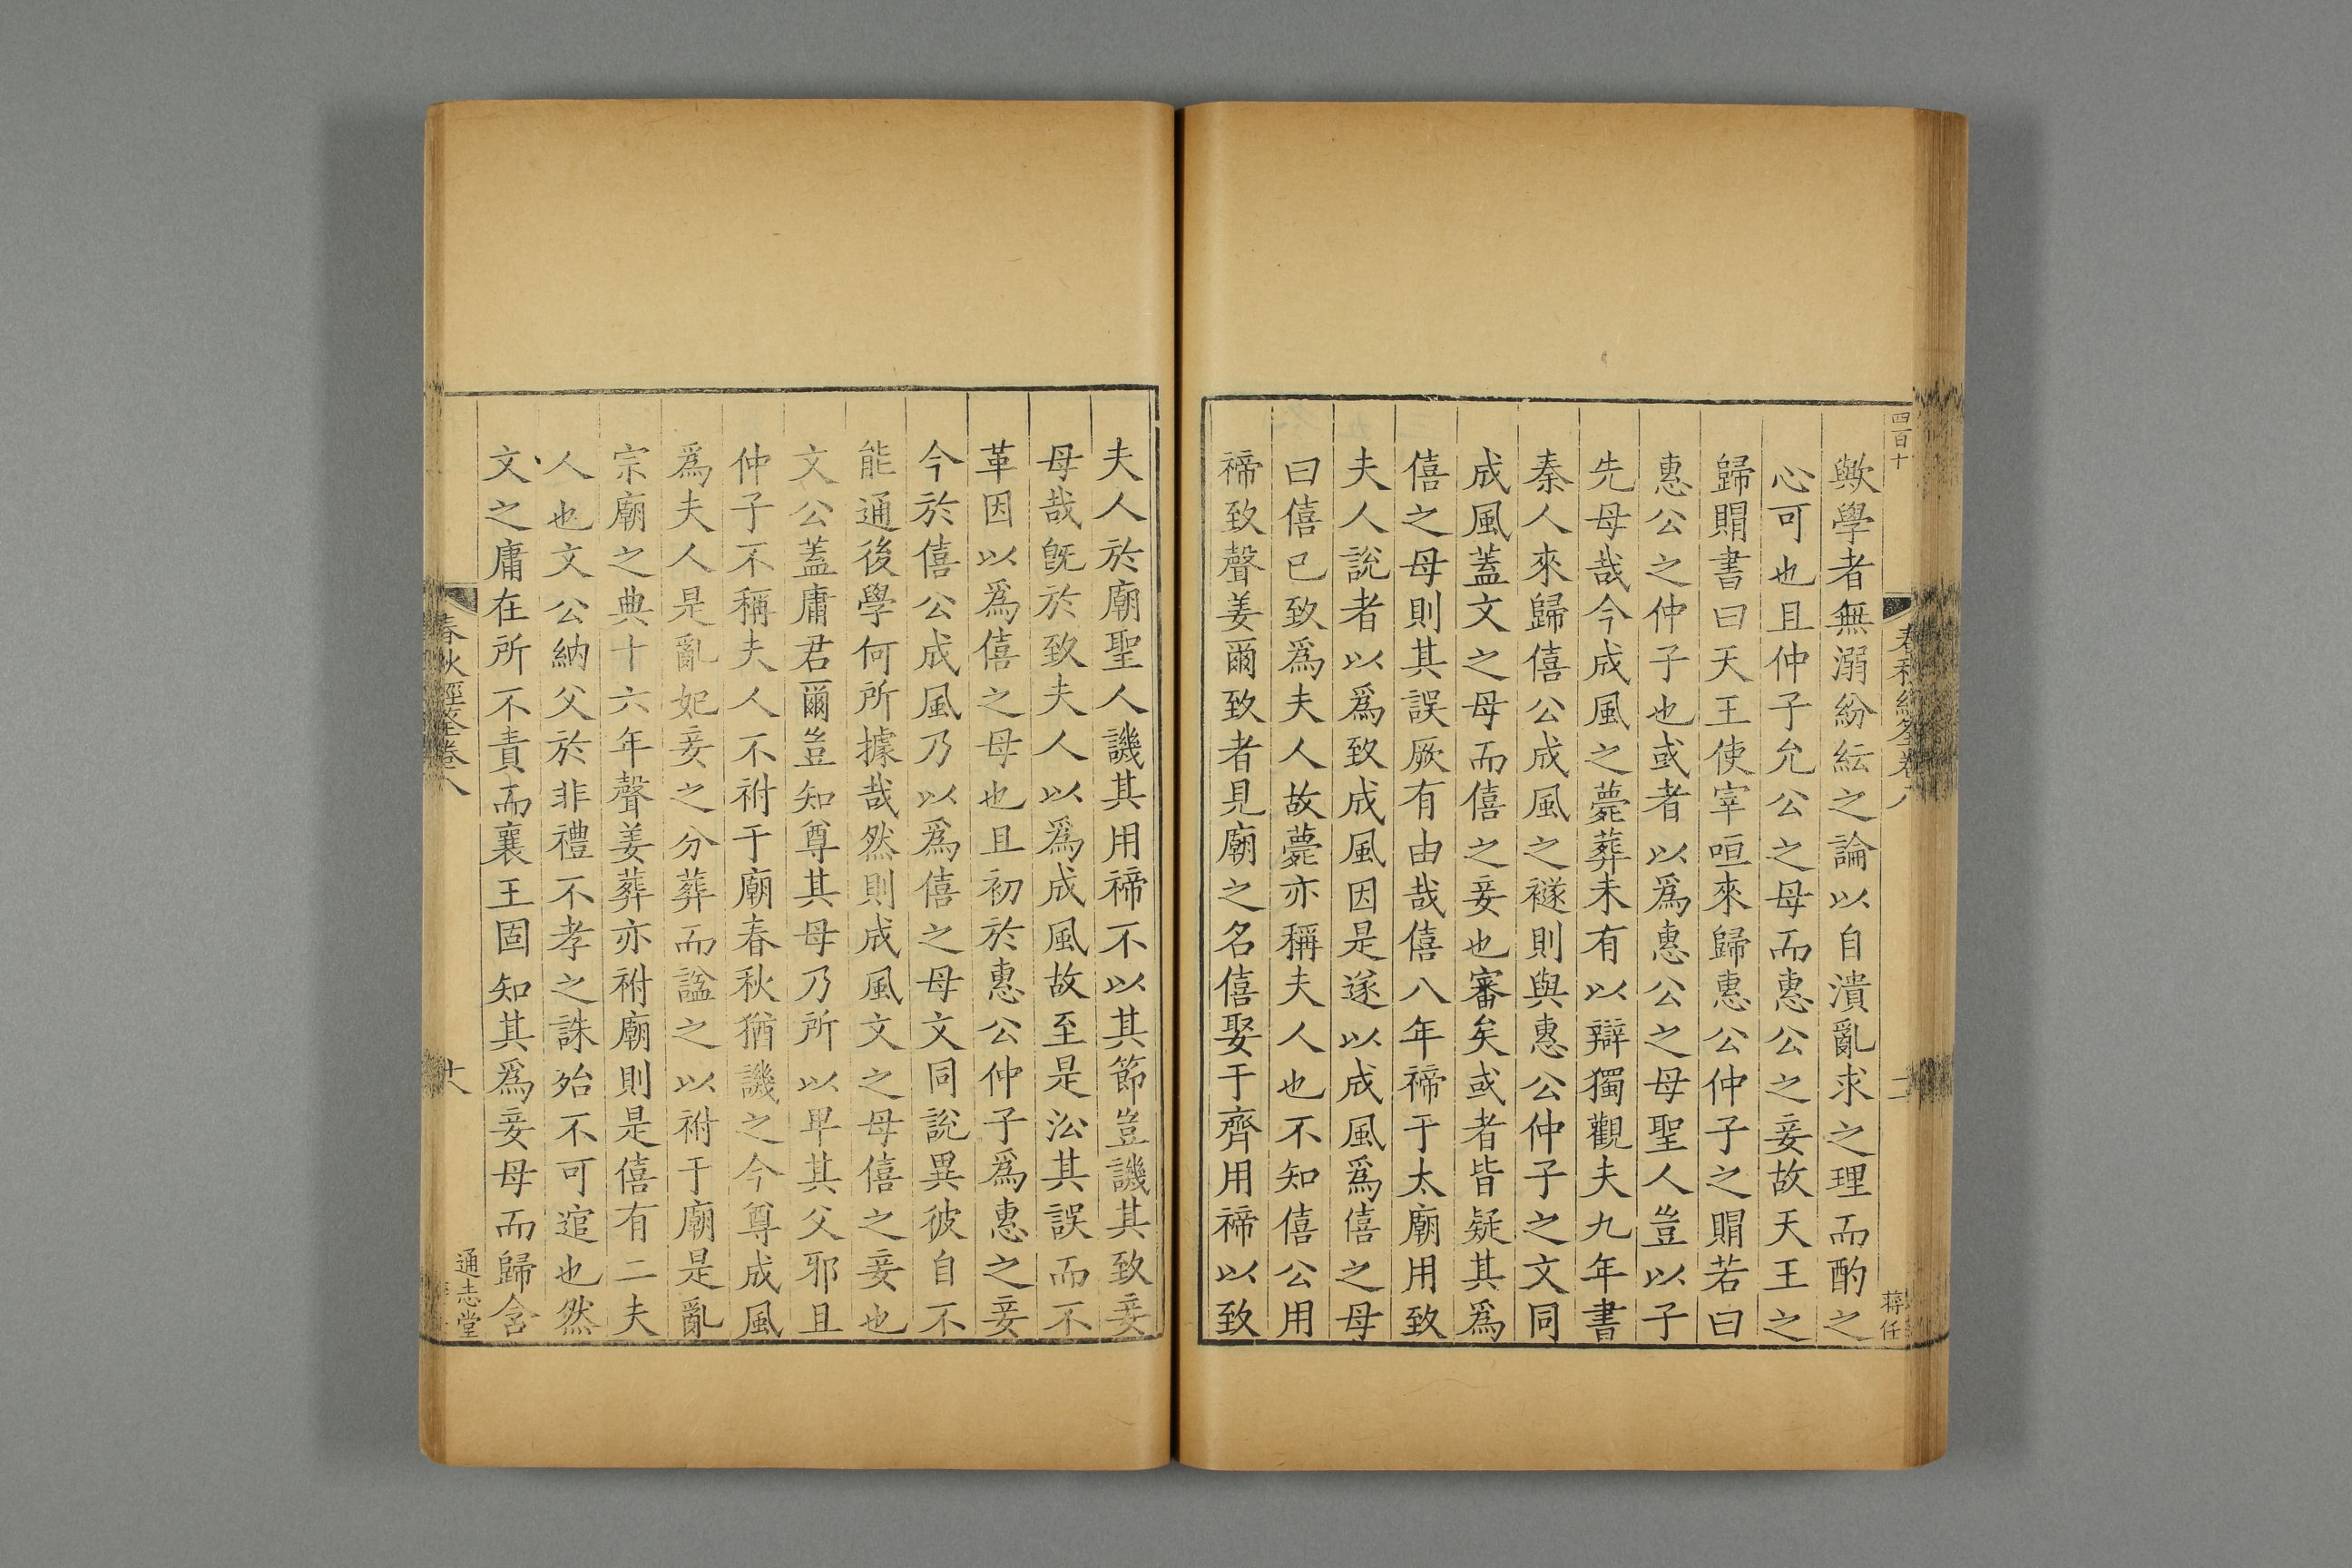 四百十
春秋經筌卷八
蔣任
歟學者無溺紛紜之論以自潰亂求之理而酌之
心可也且仲子允公之母而惠公之妾故天王之
歸賵書曰天王使宰咺來歸惠公仲子之賵若曰
惠公之仲子也或者以爲惠公之母聖人豈以子
先母哉今成風之薨葬未有以辯獨觀夫九年書
秦人來歸僖公成風之襚則與惠公仲子之文同
成風蓋文之母而僖之妾也審矣或者皆疑其爲
僖之母則其誤厥有由哉僖八年禘于太廟用致
夫人說者以爲致成風因是遂以成風爲僖之母
曰僖已致爲夫人故薨亦稱夫人也不知僖公用
禘致聲姜爾致者見廟之名僖娶于齊用禘以致
夫人於廟聖人譏其用禘不以其節豈譏其致妾
母哉旣於致夫人以爲成風故至是㳂其誤而不
革因以爲僖之母也且初於惠公仲子爲惠之妾
今於僖公成風乃以爲僖之母文同說異彼自不
能通後學何所據哉然則成風文之母僖之妾也
文公蓋庸君爾豈知尊其母乃所以卑其父邪且
仲子不稱夫人不祔于廟春秋猶譏之今尊成風
爲夫人是亂妃妾之分葬而諡之以祔于廟是亂
宗廟之典十六年聲姜葬亦祔廟則是僖有二夫
人也文公納父於非禮不孝之誅殆不可逭也然
文之庸在所不責而襄王固知其爲妾母而歸含
春秋經筌卷八
通志堂